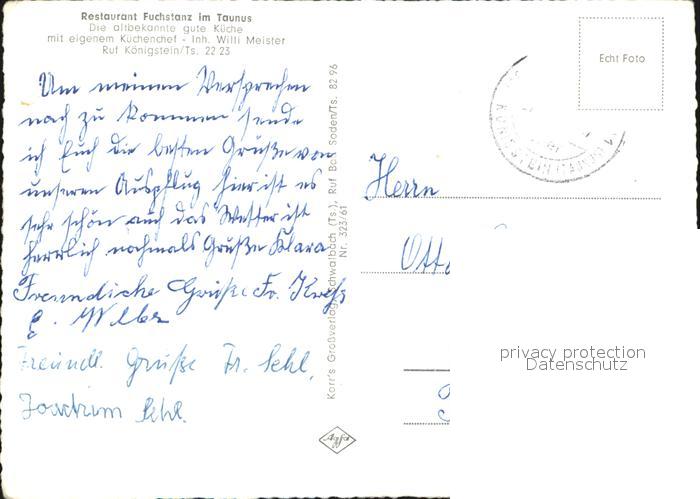 Restaurant Fuchstanz im Taunus
Die altbekannte gute Küche
mit eigenem Küchenchef - Inh. Willi Meister
Ruf Königstein/Ts. 22 23
Um meinen Versprechen
nach zu kommen sende
ich Euch die besten Grüße von
unseren Auspflug hier ist es
sehr schön auch das Wetter ist
herrlich nochmals Grüße Klara
Freundliche Grüße Fr.
E.
Freundl. Grüße Fr. Sehl.
Joachim Sehl.
Korr's Großverlag, Schwalbach (Ts.), Ruf Bad Soden/Ts. 82 96
Nr. 323/61
Agfa
Echt Foto
Herrn
Otto
privacy protection
Datenschutz